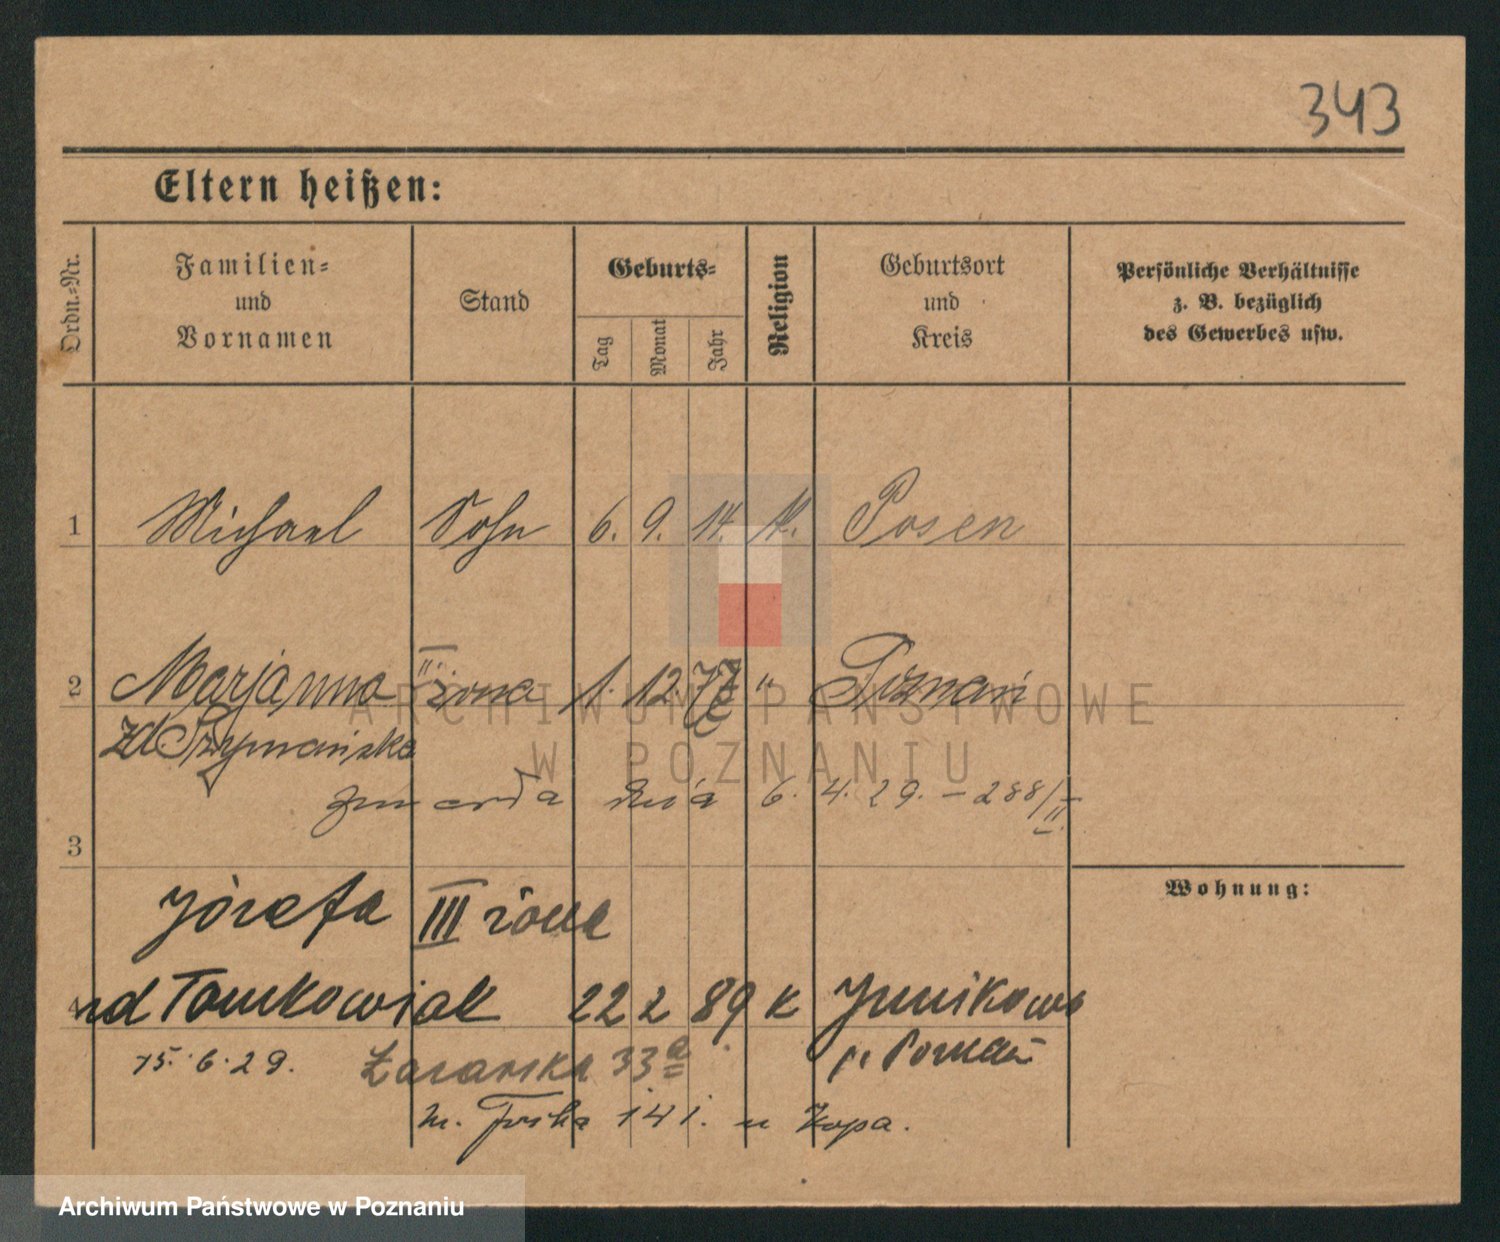 343
Eltern heißen:
Ordn.=Nr.
Familien=
und
Vornamen
Stand
Geburts=
Tag
Monat
Jahr
Religion
Geburtsort
und
Kreis
Persönliche Verhältnisse
z. B. bezüglich
des Gewerbes usw.
1 Michael Sohn 6. 9. 14. k. Posen
2 Marjanna II. żona 1. 12. " Poznań
zd Szymańska
zmarła dnia 6. 4. 29. – 288/II
3
Józefa III żona
Wohnung:
4
zd Tomkowiak 22 2 89 k Junikowo
p. Poznań
15. 6. 29. 33a
m. 141. u Kopa.
ARCHIWUM PAŃSTWOWE
W POZNANIU
Archiwum Państwowe w Poznaniu